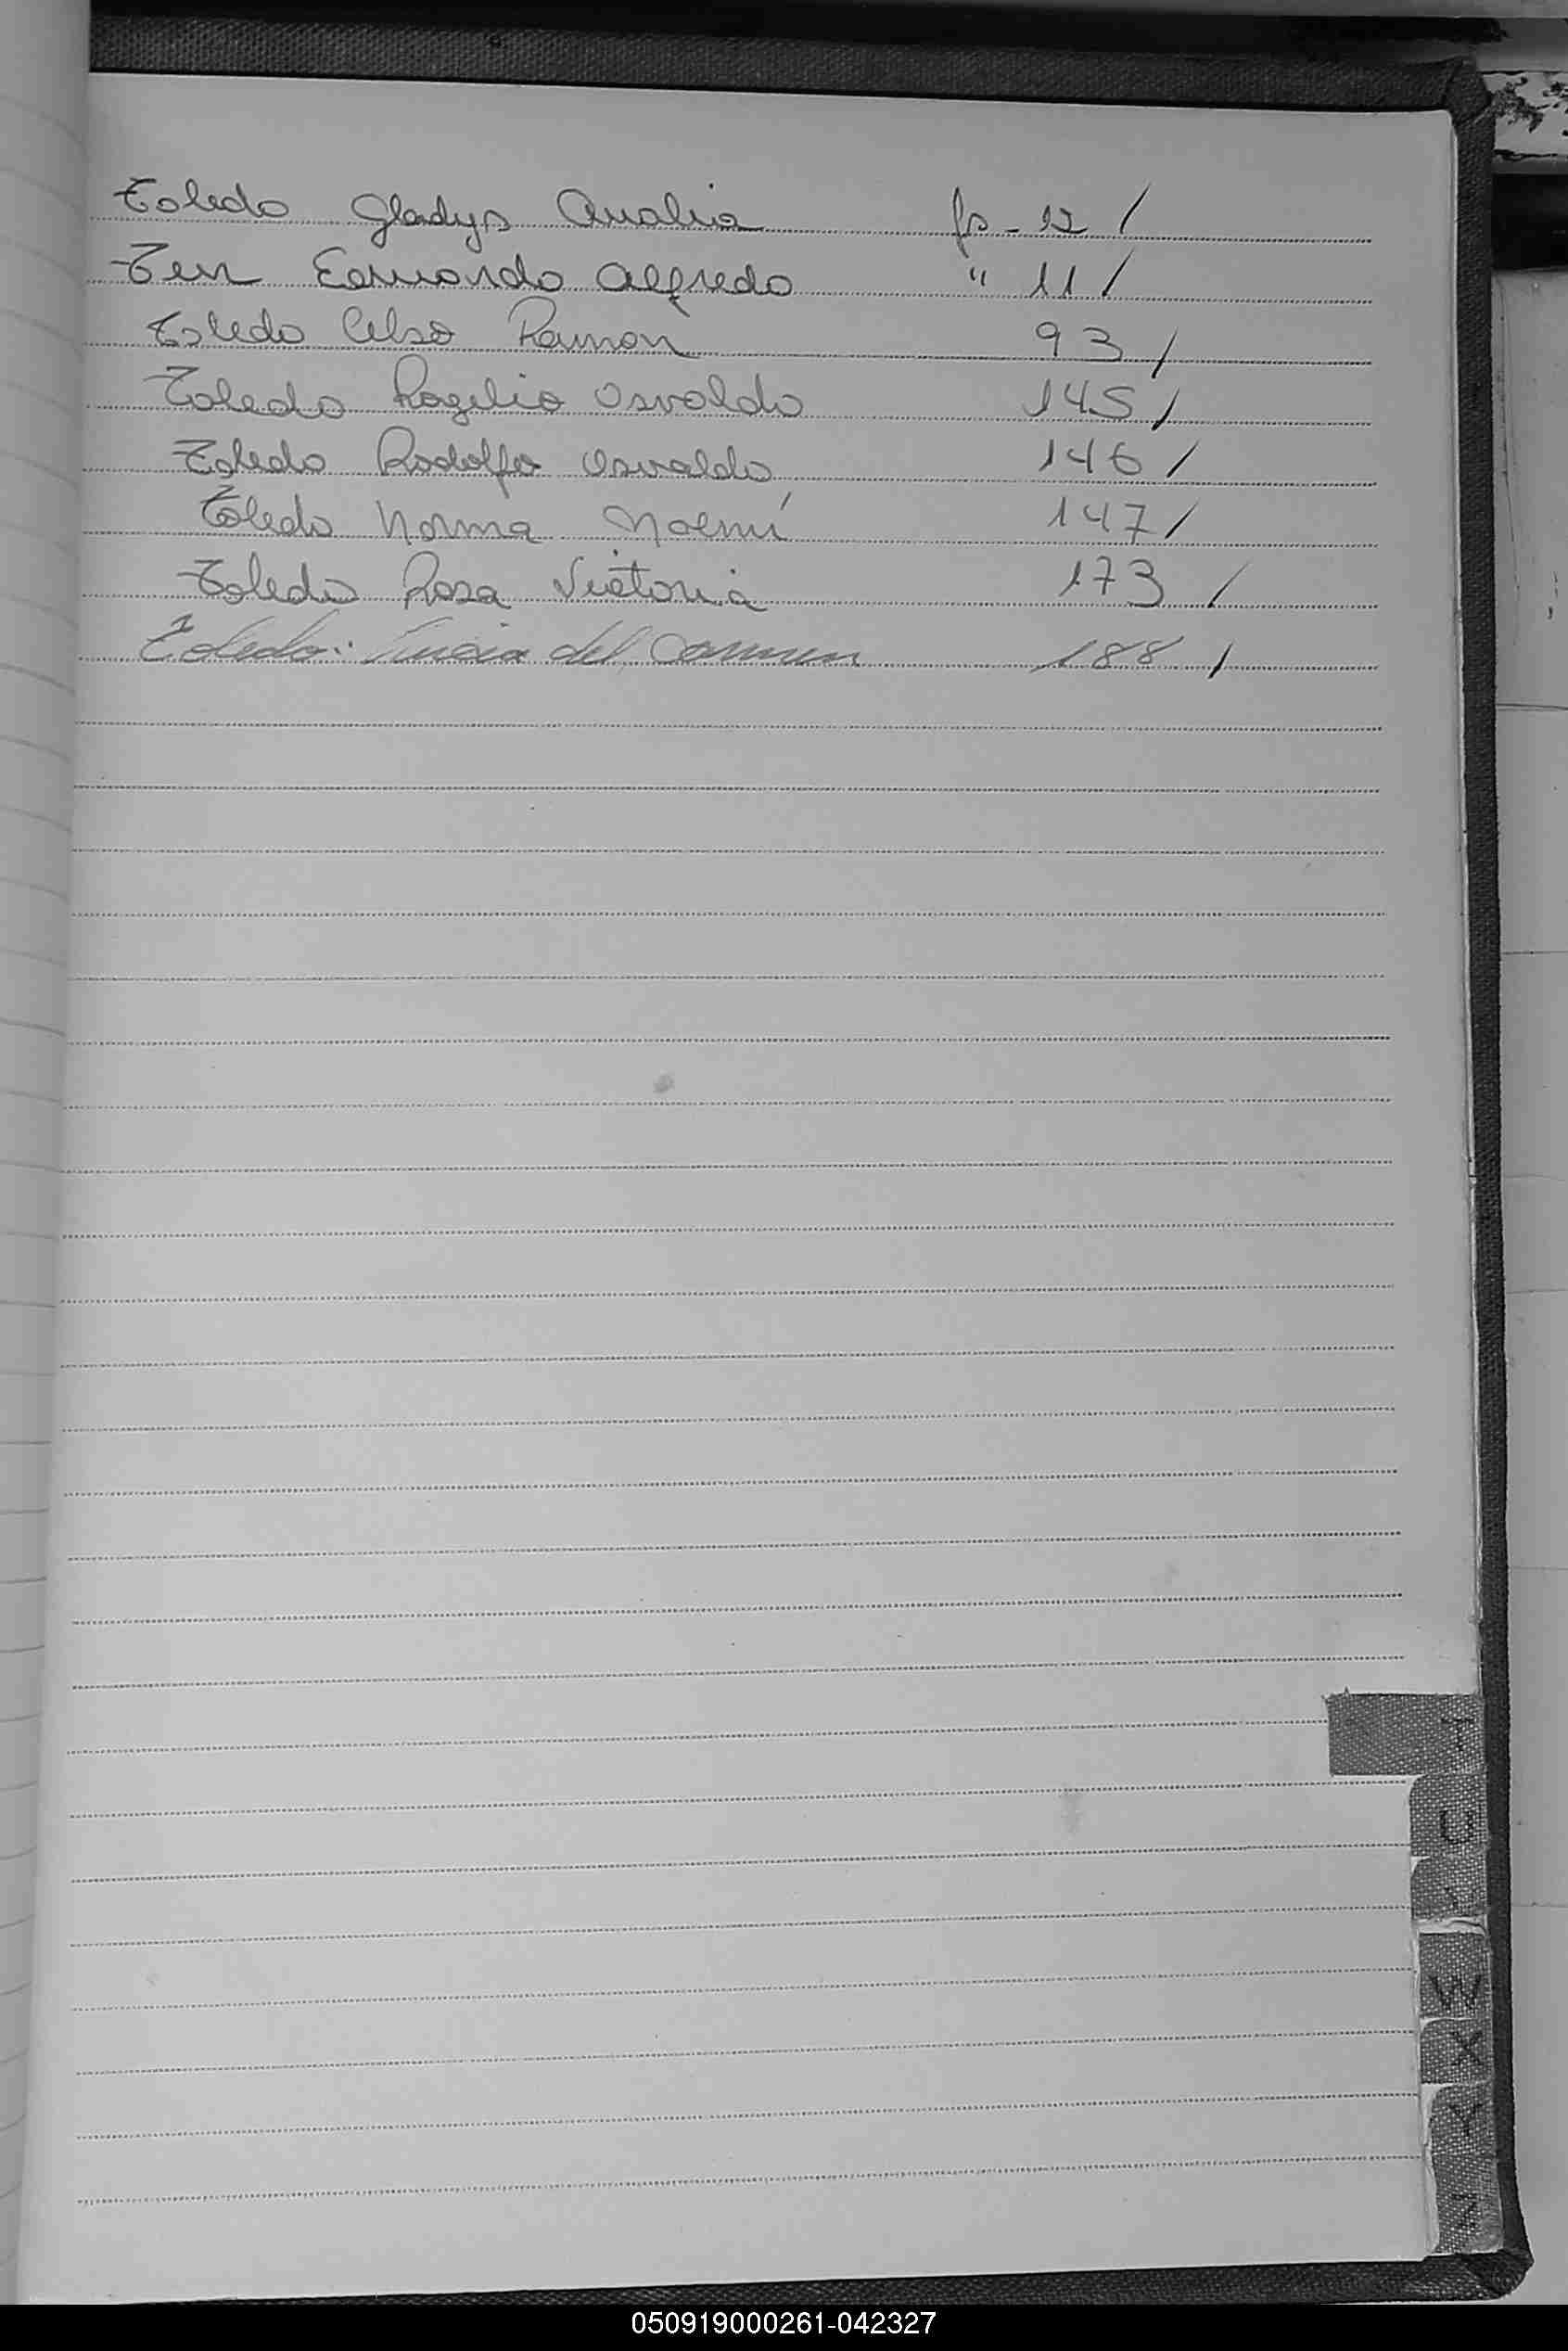 Toledo Gladys Analia fs - 12 /
Edmundo Alfredo " 11 /
Toledo Celso Ramon 93 /
Toledo Rogelio Osvaldo 145 /
Toledo Rodolfo Osvaldo, 146 /
Toledo Norma Noemí 147 /
Toledo Rosa Victoria 173 /
Toledo: del Carmen 188 /
T
U
V
W
X
Y
Z
050919000261-042327